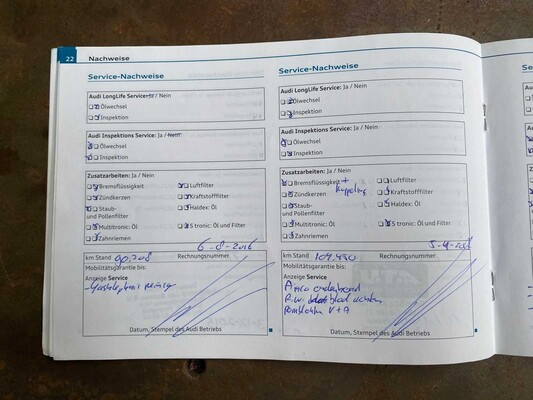 22 Nachweise
Service-Nachweise
Audi LongLife Service: Ja / Nein
Ölwechsel
Inspektion
Audi Inspektions Service: Ja / Nein
Ölwechsel
Inspektion
Zusatzarbeiten: Ja / Nein
Bremsflüssigkeit Luftfilter
Zündkerzen Kraftstofffilter
Staub- Haldex: Öl
und Pollenfilter
Multitronic: Öl S tronic: Öl und Filter
Zahnriemen
6-8-2016
km Stand 90,208 Rechnungsnummer
Mobilitätsgarantie bis:
Anzeige Service
Datum, Stempel des Audi Betriebs
Service-Nachweise
Audi LongLife Service: Ja / Nein
Ölwechsel
Inspektion
Audi Inspektions Service: Ja / Nein
Ölwechsel
Inspektion
Zusatzarbeiten: Ja / Nein
Bremsflüssigkeit + Luftfilter
Koppeling
Zündkerzen Kraftstofffilter
Staub- Haldex: Öl
und Pollenfilter
Multitronic: Öl S tronic: Öl und Filter
Zahnriemen
km Stand 109.430 Rechnungsnummer
Mobilitätsgarantie bis:
Anzeige Service
Airco onderhoud
V+A
Datum, Stempel des Audi Betriebs